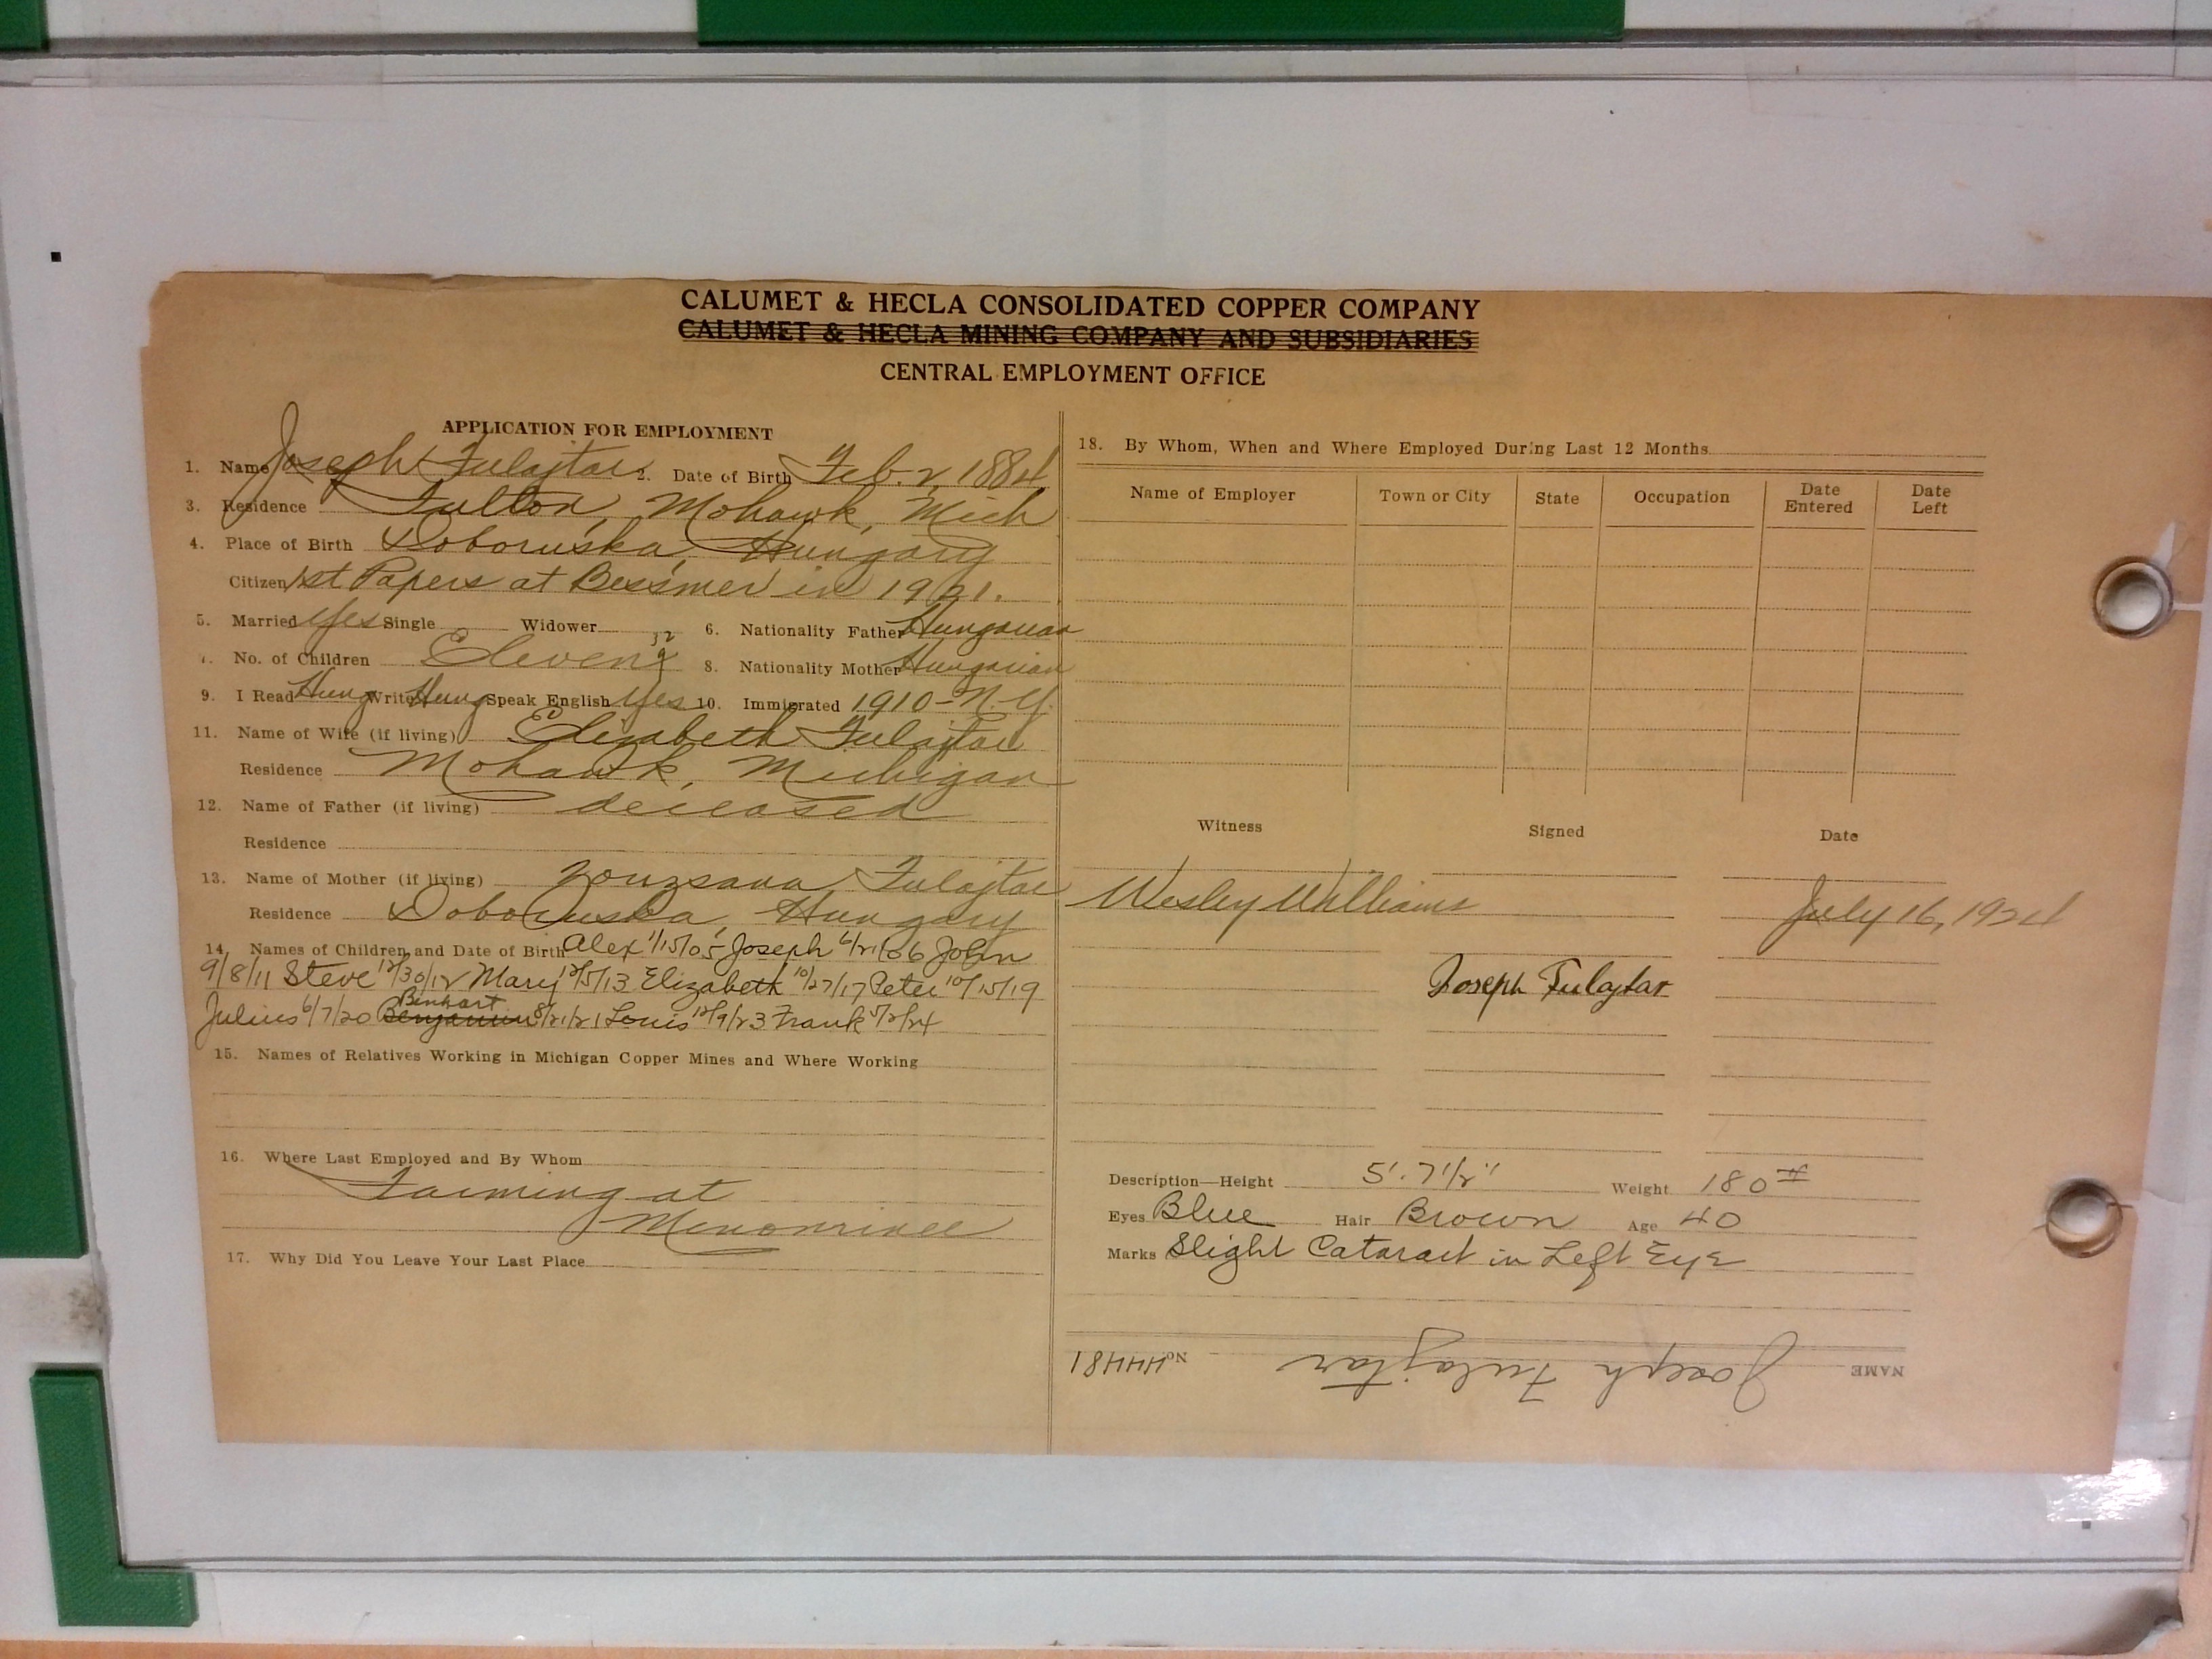 CALUMET & HECLA CONSOLIDATED COPPER COMPANY
CALUMET & HECLA MINING COMPANY AND SUBSIDIARIES
CENTRAL EMPLOYMENT OFFICE
APPLICATION FOR EMPLOYMENT
1. Name Joseph Fulajtar 2. Date of Birth Feb. 2, 1884
3. Residence Fulton, Mohawk, Mich
4. Place of Birth Doboruska, Hungary
Citizen 1st Papers at Bessmer in 1921.
5. Married Yes Single Widower 6. Nationality Father Hungarian
No. of Children Eleven 8. Nationality Mother Hungarian
9. I Read Hung Write Hung Speak English Yes 10. Immigrated 1910-N.Y.
11. Name of Wife (if living) Elizabeth Fulajtar
Residence Mohawk, Michigan
12. Name of Father (if living) deceased
Residence
13. Name of Mother (if living) Zouzsana Fulajtar
Residence Doboruska, Hungary
14. Names of Children and Date of Birth Alex 1/15/05 Joseph 6/21/06 John
9/8/11 Steve 12/30/12 Mary 12/5/13 Elizabeth 10/27/17 Peter 10/15/19
Benhart
Julius 6/7/20 Benjamin 8/21/21 Louis 12/9/23 Frank 5/2/24
15. Names of Relatives Working in Michigan Copper Mines and Where Working
16. Where Last Employed and By Whom
Farming at
Menominee
17. Why Did You Leave Your Last Place
18. By Whom, When and Where Employed During Last 12 Months
Name of Employer Town or City State Occupation Date Entered Date Left
Witness Signed Date
Wesley Williams July 16, 1924
Joseph Fulajtar
Description—Height 5'. 7 1/2" Weight 180 #
Eyes Blue Hair Brown Age 40
Marks Slight Cataract in Left Eye
NAME Joseph Fulajtar No. 44481